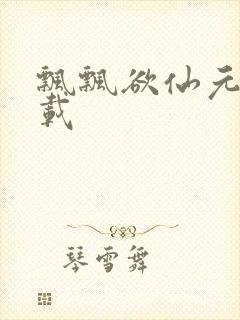 飘飘欲仙元
载
琴雪舞